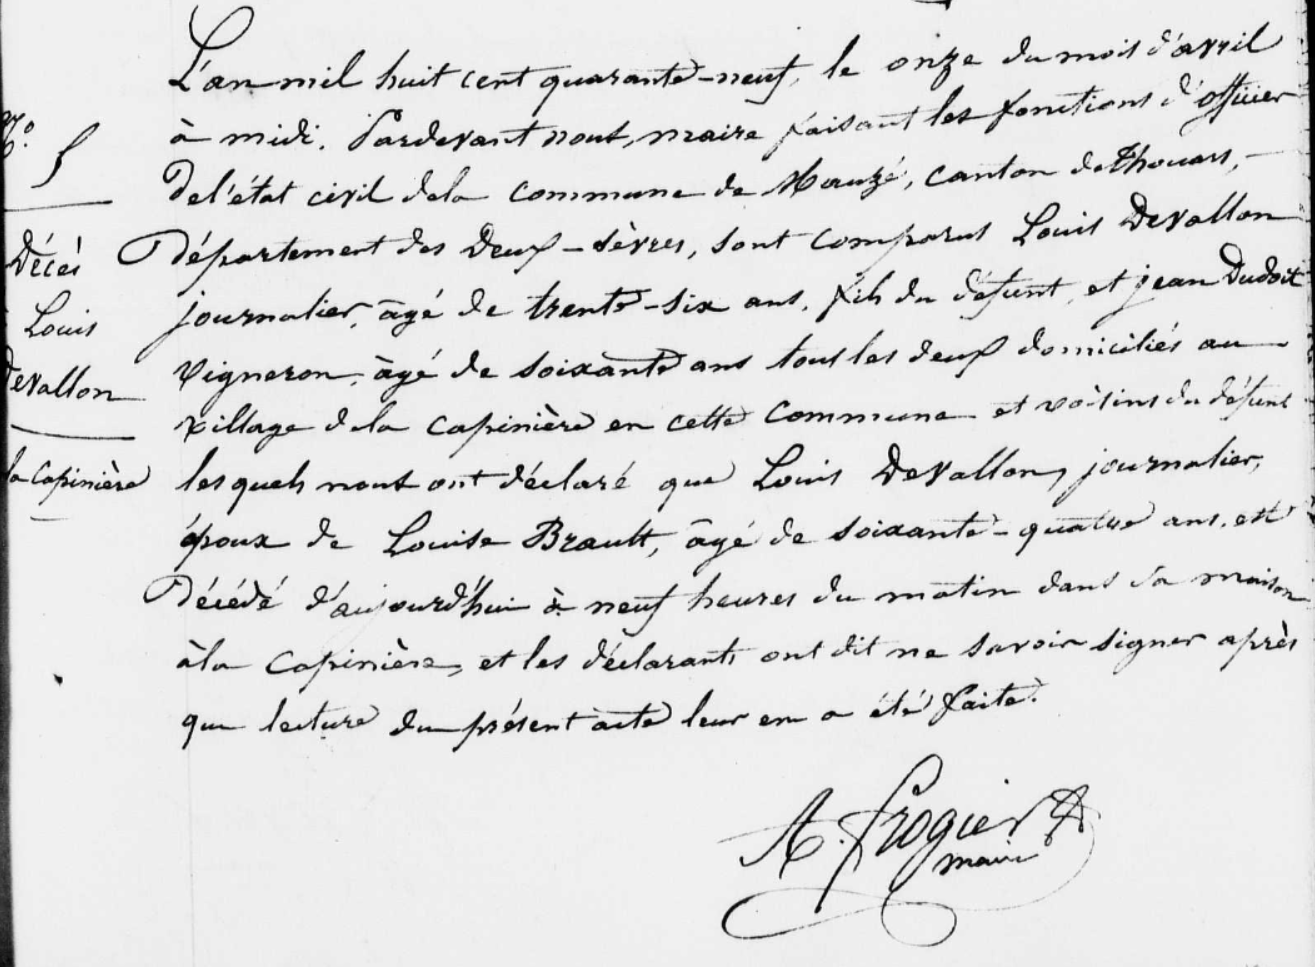 N.o 5
Décès
Louis
Devallon
la Capinière
L'an mil huit cent quarante-neuf, le onze du mois d'avril
à midi. Pardevant nous, maire faisant les fonctions d'officier
de l'état civil de la commune de Mauzé, canton de Thouars,
Département des Deux-Sèvres, sont comparus Louis Devallon
journalier, âgé de trente-six ans, fils du défunt, et jean Dudoit
vigneron, âgé de soixante ans tous les deux domiciliés au
village de la Capinière en cette commune et voisins du défunt
lesquels nous ont déclaré que Louis Devallon, journalier,
époux de Louise Brault, âgé de soixante-quatre ans, est
Décédé d'aujourd'hui à neuf heures du matin dans sa maison
à la Capinière, et les déclarants ont dit ne savoir signer après
que lecture du présent acte leur en a été faite.
A. Frogier
maire